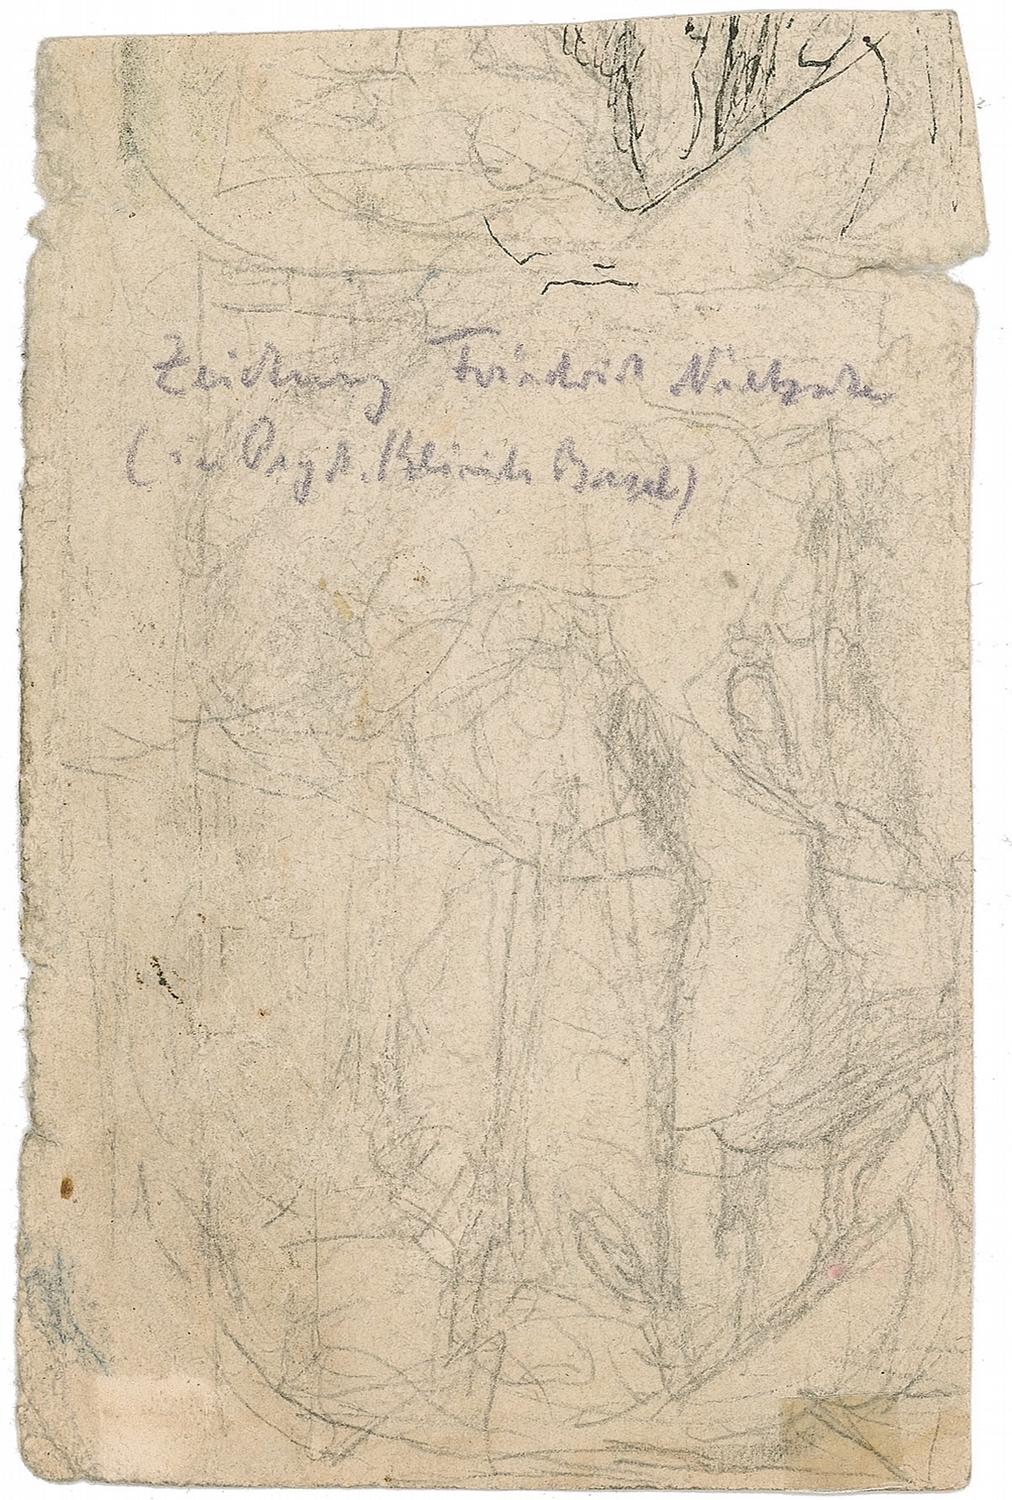 Zeichnung Friedrich Nietzsche
(in Psych. Klinik Basel)